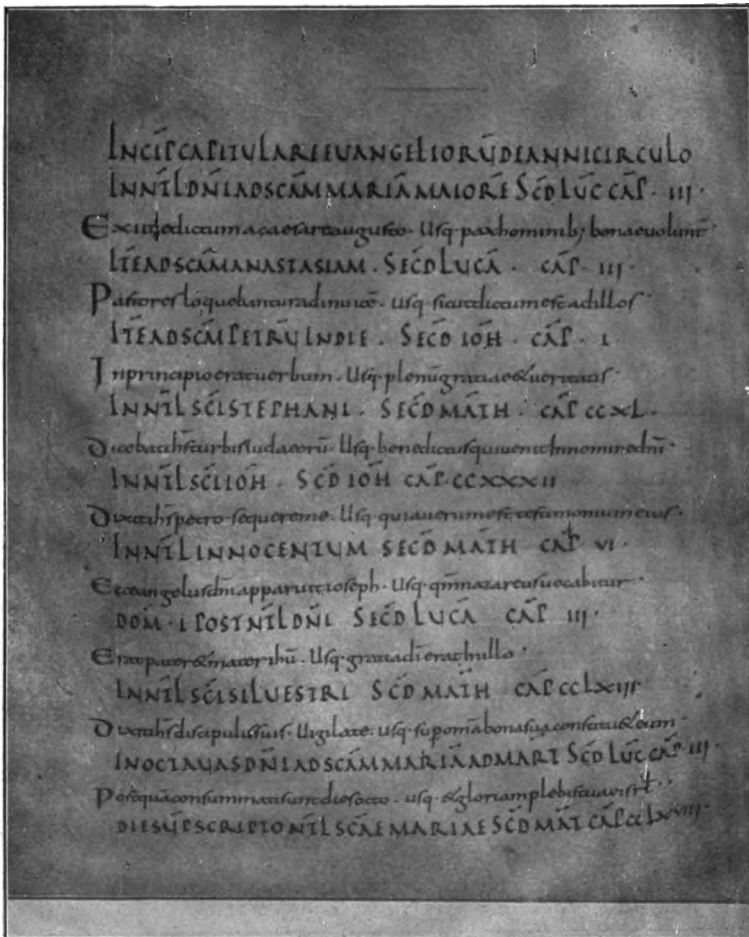 INCIP̄ CAPITULARE EUANGELIORŪ DE ANNI CIRCULO
IN NT̄L DN̄I AD SCĀM MARIĀ MAIORĒ SC̄D LUC̄ CAP̄ · III ·
Exiit edictum a caesare augusto · Usq· pax hominib; bonae volunt̄
ITĒ AD SCĀM ANASTASIAM · SEC̄D LUCĀ · CAP̄ · III ·
Pastores loquebantur adinuicē · usq· sicut dictum est ad illos
ITĒ AD SCM̄ PETRŪ IN DIE · SEC̄D IOH̄ · CAP̄ · I
In principio erat uerbum · Usq· plenū gratiae & ueritatis
IN NT̄L SC̄I STEPHANI · SEC̄D MATH̄ · CAP̄ CCXL ·
Dicebat ih̄s turbis iudaeorū · Usq· benedictus qui uenit In nomine dn̄i ·
IN NT̄L SC̄I IOH̄ · SC̄D IOH̄ CAP̄ · CCXXXII
Dixit ih̄s petro sequere me · Usq· quia uerum est testimonium eius ·
IN NT̄L INNOCENTUM SEC̄D MATH̄ CAP̄ VI ·
Ecce angelus dn̄i apparuit ioseph · Usq· qm̄ nazareus uocabitur
DOM · I POST NT̄L DN̄I SEC̄D LUCĀ CAP̄ III ·
Erat pater & mater ih̄u · Usq· gratia dī erat In illo ·
IN NT̄L SC̄I SILUESTRI SC̄D MATH̄ CAP̄ CCLXIIII
Dixit ih̄s discipulis suis · Uigilate · usq· sup om̄a bona sua constitu& eum ·
IN OCTAUAS DN̄I AD SCĀM MARIĀ AD MART SC̄D LUC̄ CAP̄ · III ·
Postquā consummati sunt dies octo · usq· & gloriam plebis tuae isrl̄ ·
DIE SŪPSCRIPTO NT̄L SCAE MARIAE SC̄D MAT̄ CAP̄ CCLXVIII ·